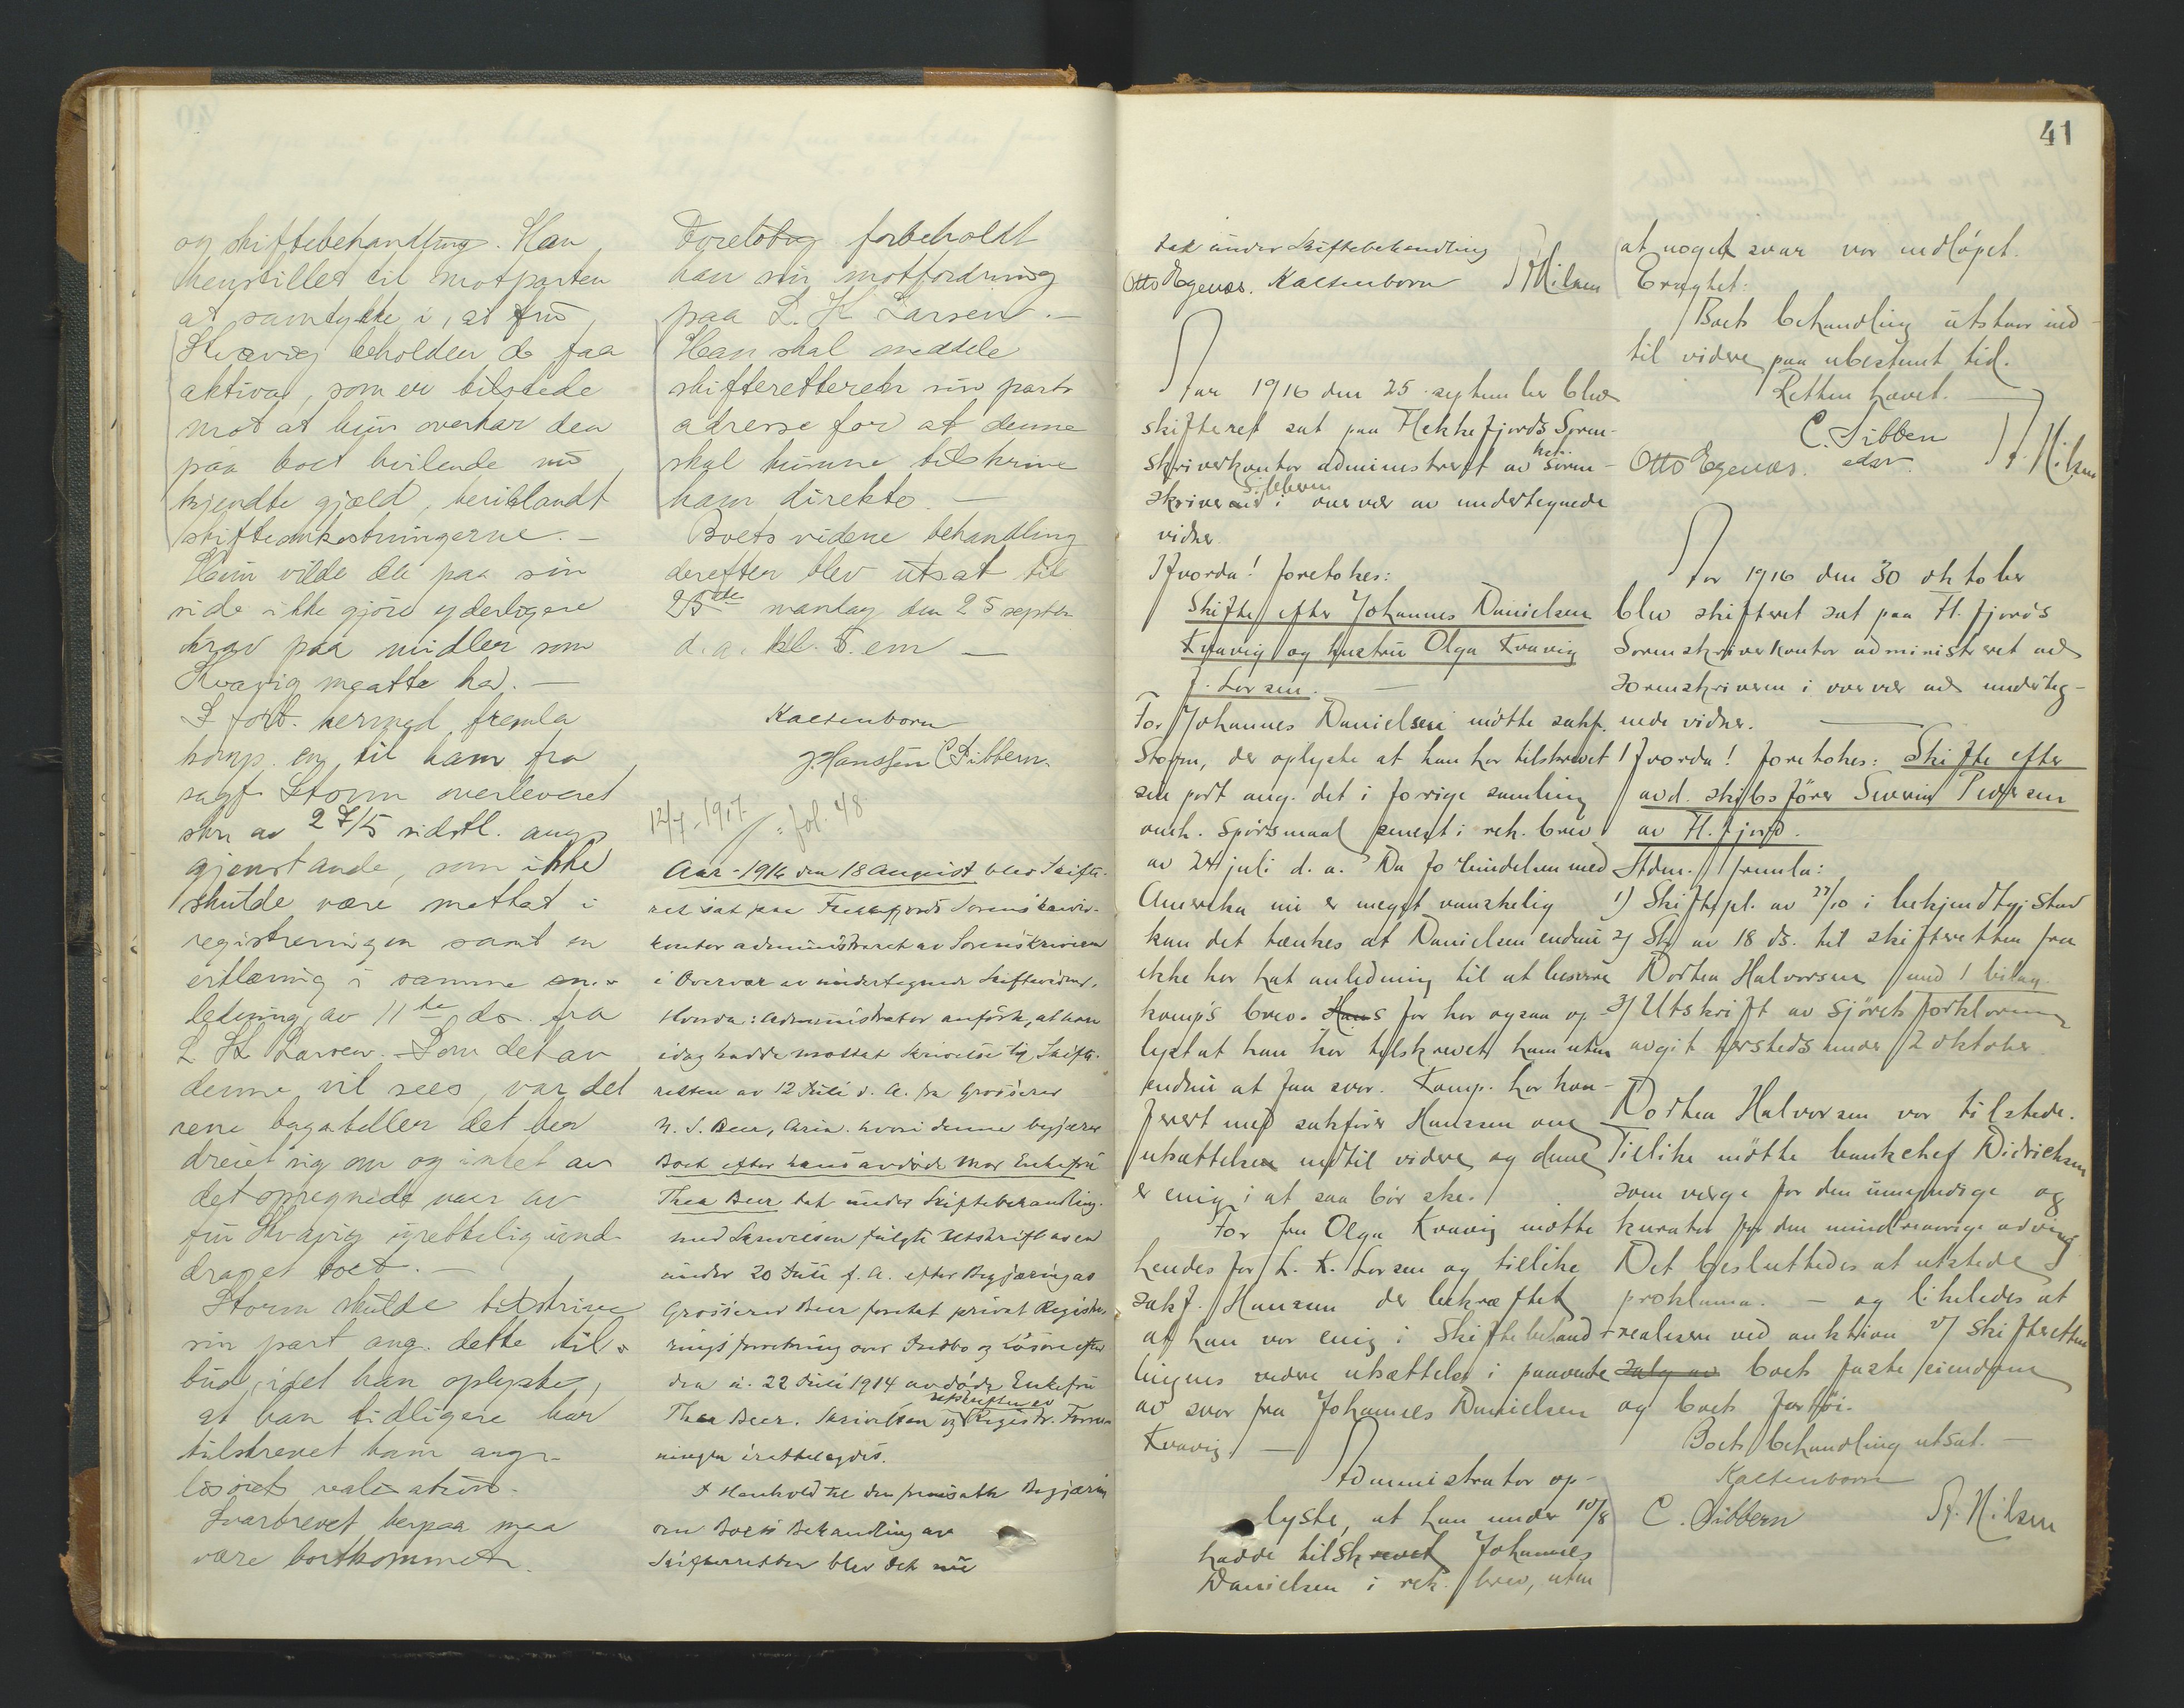 og skiftebehandling. Han
henstiller til motparten
at samtykke i, at fru
Kvavig beholder de faa
aktiva, som er tilstede
mot at hun overtar den
paa boet hvilende nu
kjendte gjæld, beriblandt
skifteomkostningerne. –
Hun vilde da paa sin
side ikke gjøre yderligere
krav paa midler som
Kvavig maatte ha. –
I forb. hermed fremla
komp. en til ham fra
sagf. Storm overleveret
skr av 27/5 sidstl. ang
gjenstande, som ikke
skulde være mottat i
registreringen samt en
erklæring i samme an-
ledning av 11te ds. fra
L K Larsen. Som det av
denne vil sees, var det
rene bagateller det her
dreiet sig om og intet av
det opregnede var av
fru Kvavig urettelig und-
draget boet. –
Storm skulde tilskrive
sin part ang. dette til-
bud, idet han oplyste,
at han tidligere har
tilskrevet ham ang.
løsørets realisation.
Svarbrevet herpaa maa
være bortkommet.
Foreløbig forbeholdt
han sin motfordring
paa L. K Larsen. –
Han skal meddele
skifteretteren sin parts
adresse for at denne
skal kunne tilskrive
ham direkte. –
Boets videre behandling
derefter blev utsat til
25de mandag den 25 septbr
d. a. kl. 5. em –
Kaltenborn
J. Hanssen C Sibbern.
12/7 - 1917. fol. 48
Aar - 1916 den 18 August blev Skifte-
ret sat paa Flekkefjords Sorenskriver-
kontor administreret av Sorenskriveren
i Overvær av undertegnede Skiftevidner.
Hvorda: Administrator anførte, at han
idag hadde mottat Skrivelse til Skifte-
retten av 12 Juli d. A. fra Grosserer
N. S. Beer, hvori denne begjærer
Boet efter hans avdøde Mor Enkefru
Thea Beer tat under Skiftebehandling.
med Skrivelsen fulgte Utskrift av en
under 20 Juli f. A. efter Begjæring av
Grosserer Beer foretat privat Registre-
rings forretning over Indbo og Løsøre efter
den u. 22 Juli 1914 avdøde Enkefru
Thea Beer. Skrivelsen og utskriften av Registr. Forret-
ningen irettelagdes.
I Henhold til den fremsatte Begjæring
om Boets Behandling av
Skifteretten blev det nu
41
tat under Skiftebehandling
Otto Egenes. Kaltenborn Nilsen
Aar 1916 den 25 september blev
skifteret sat paa Flekkefjords Soren-
skriverkontor administrert av kst. Soren-
skriver Sibbern i overvær av undertegnede
vidner.
Hvorda! foretokes:
Skifte efter Johannes Danielsen
Kvavig og hustru Olga Kvavig
f. Larsen. –
For Johannes Danielsen møtte sakf.
Storm, der oplyste at han har tilskrevet
sin part ang. det i forrige samling
omh. Spørsmaal senest i rek. brev
av 24 juli d. a. Da forbindelsen med
Amerika nu er meget vanskelig
kan det tænkes at Danielsen endnu
ikke har hat anledning til at besvare
komp's brev. Hans far har ogsaa op-
lyst at han har tilskrevet ham uten
endnu at faa svar. Komp. har kon-
ferert med sakfører Hanssen om
utsættelse indtil videre og denne
er enig i at saa bør ske.
For fru Olga Kvavig møtte
hendes far L. K. Larsen og tillike
sakf. Hanssen der bekræftet
at han var enig i Skiftebehand-
lingens videre utsættelse i paavente
av svar fra Johannes Danielsen
Kvavig. –
Administrator op-
lyste, at han under 10/8
hadde tilskrevet Johannes
Danielsen i rek. brev, uten
at noget svar var indløpet.
Eragtet:
Boets behandling utstaar ind-
til videre paa ubestemt tid.
Retten hævet. –
C. Sibbern
edsv.
Otto Egenes. Nilsen
Aar 1916 den 30 oktober
blev skifteret sat paa Fl.fjords
Sorenskriverkontor administreret av
sorenskriveren i overvær av underteg-
nede vidner. –
Hvorda! foretokes: Skifte efter
avd. skibsfører Severin Pedersen
av Fl.fjord.
Adm. fremla:
1) Skiftepl. av 27/10 i bekjendtgj stand
2) Skr av 18 ds. til skifteretten fra
Dorthea Halvorsen med 1 bilag.
3) Utskrift av Sjøretsforklaring
avgit hersteds under 2 oktober.
Dorthea Halvorsen var tilstede.
Tillike møtte bankchef Didriksen
som verge for den umyndige og
kurator for den mindreaarige arving
Det besluttedes at utstede
proklama. – og likeledes at
realisere ved auktion v/ skifteretten
salg av boets faste eiendom
og boets fartøi.
Boets behandling utsat. –
Kaltenborn
C. Sibbern Nilsen